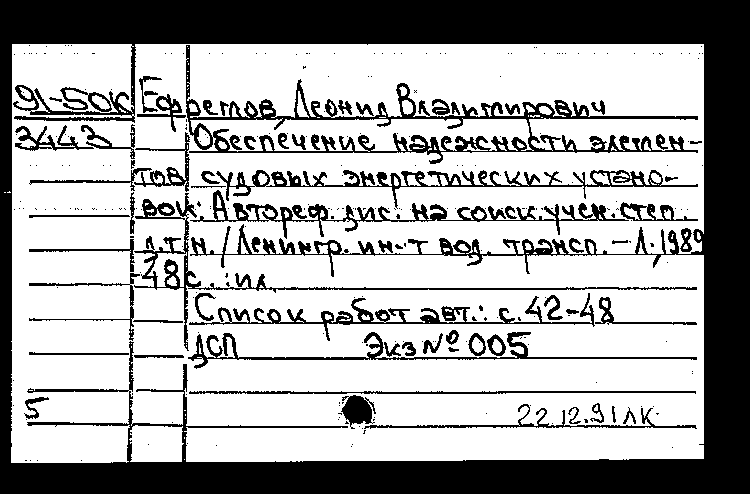 91-50К Ефремов, Леонид Владимирович
3443 Обеспечение надежности элемен-
тов судовых энергетических устано-
вок: Автореф. дис. на соиск. учен. степ.
д.т.н. / Ленингр. ин-т вод. трансп. - Л., 1989
48 с.: ил.
Список работ авт.: с. 42-48
ДСП Экз № 005
5 22.12.91 ЛК